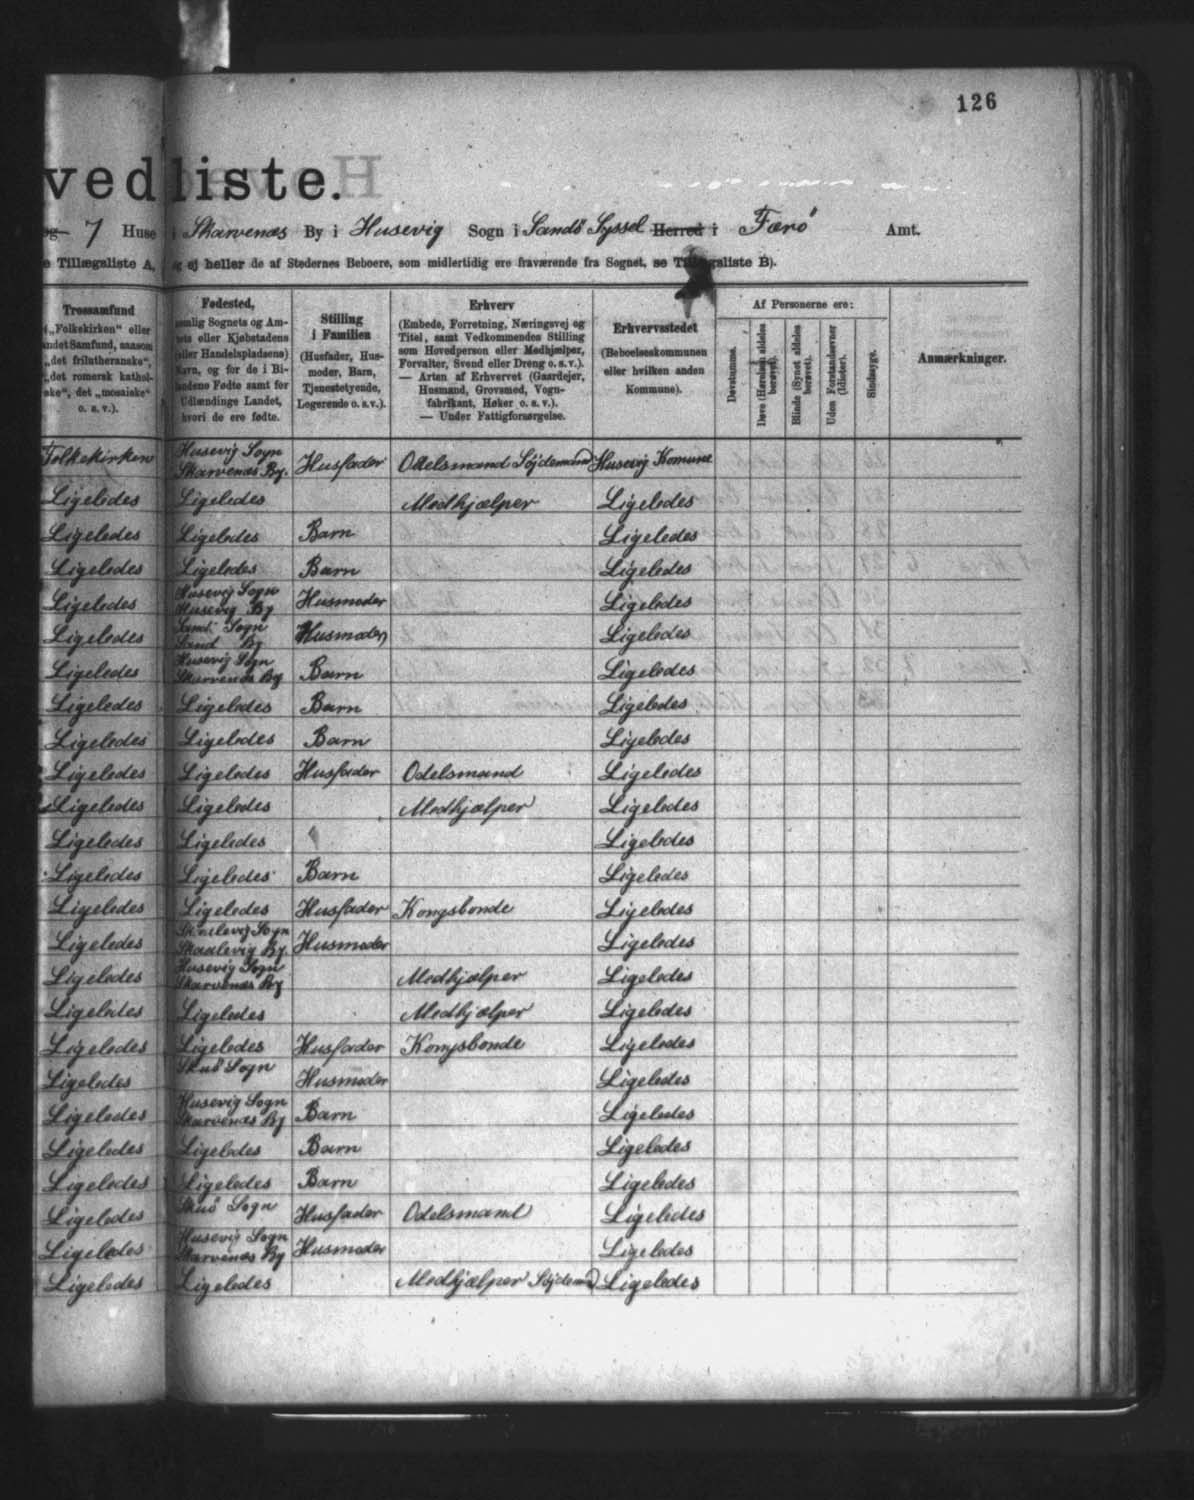 126
vedliste.
og 7 Huse i Skarvenæs By i Husevig Sogn i Sandø Syssel Herred i Færø Amt.
e Tillægsliste A, og ej heller de af Stedernes Beboere, som midlertidig ere fraværende fra Sognet, se Tillægsliste B).
Trossamfund
(„Folkekirken“ eller
andet Samfund, saasom
„det frilutheranske“,
„det romersk kathol-
ske“, det „mosaiske“
o. s. v.).
Fødested,
nemlig Sognets og Am-
tets eller Kjøbstadens
(eller Handelspladsens)
Navn, og for de i Bi-
landene Fødte samt for
Udlændinge Landet,
hvori de ere fødte.
Stilling
i Familien
(Husfader, Hus-
moder, Barn,
Tjenestetyende,
Logerende o. s. v.).
Erhverv
(Embede, Forretning, Næringsvej og
Titel, samt Vedkommendes Stilling
som Hovedperson eller Medhjælper,
Forvalter, Svend eller Dreng o. s. v.).
— Arten af Erhvervet (Gaardejer,
Husmand, Grovsmed, Vogn-
fabrikant, Høker o. s. v.).
— Under Fattigforsørgelse.
Erhvervsstedet
(Beboelseskommunen
eller hvilken anden
Kommune).
Af Personerne ere:
Døvstumme.
Døve (Hørelsen aldeles
berøvet).
Blinde (Synet aldeles
berøvet).
Uden Forstandsevner
(Idioter).
Sindssyge.
Anmærkninger.
Folkekirken Husevig Sogn Skarvenæs By. Husfader Odelsmand Söjdemand Husevig Komune
Ligeledes Ligeledes Medhjælper Ligeledes
Ligeledes Ligeledes Barn Ligeledes
Ligeledes Ligeledes Barn Ligeledes
Ligeledes Husevig Sogn Husevig By Husmoder Ligeledes
Ligeledes Sand Sogn Sand By Husmoder Ligeledes
Ligeledes Husevig Sogn Skarvenæs By Barn Ligeledes
Ligeledes Ligeledes Barn Ligeledes
Ligeledes Ligeledes Barn Ligeledes
Ligeledes Ligeledes Husfader Odelsmand Ligeledes
Ligeledes Ligeledes Medhjælper Ligeledes
Ligeledes Ligeledes Ligeledes
Ligeledes Ligeledes Barn Ligeledes
Ligeledes Ligeledes Husfader Kongsbonde Ligeledes
Ligeledes Sogn Skaalevig By. Husmoder Ligeledes
Ligeledes Husevig Sogn Skarvenæs By Medhjælper Ligeledes
Ligeledes Ligeledes Medhjælper Ligeledes
Ligeledes Ligeledes Husfader Kongsbonde Ligeledes
Ligeledes Skuö Sogn Husmoder Ligeledes
Ligeledes Husevig Sogn Skarvenæs By Barn Ligeledes
Ligeledes Ligeledes Barn Ligeledes
Ligeledes Ligeledes Barn Ligeledes
Ligeledes Skuö Sogn Husfader Odelsmand Ligeledes
Ligeledes Husevig Sogn Skarvenæs By Husmoder Ligeledes
Ligeledes Ligeledes Medhjælper Söjdemand Ligeledes